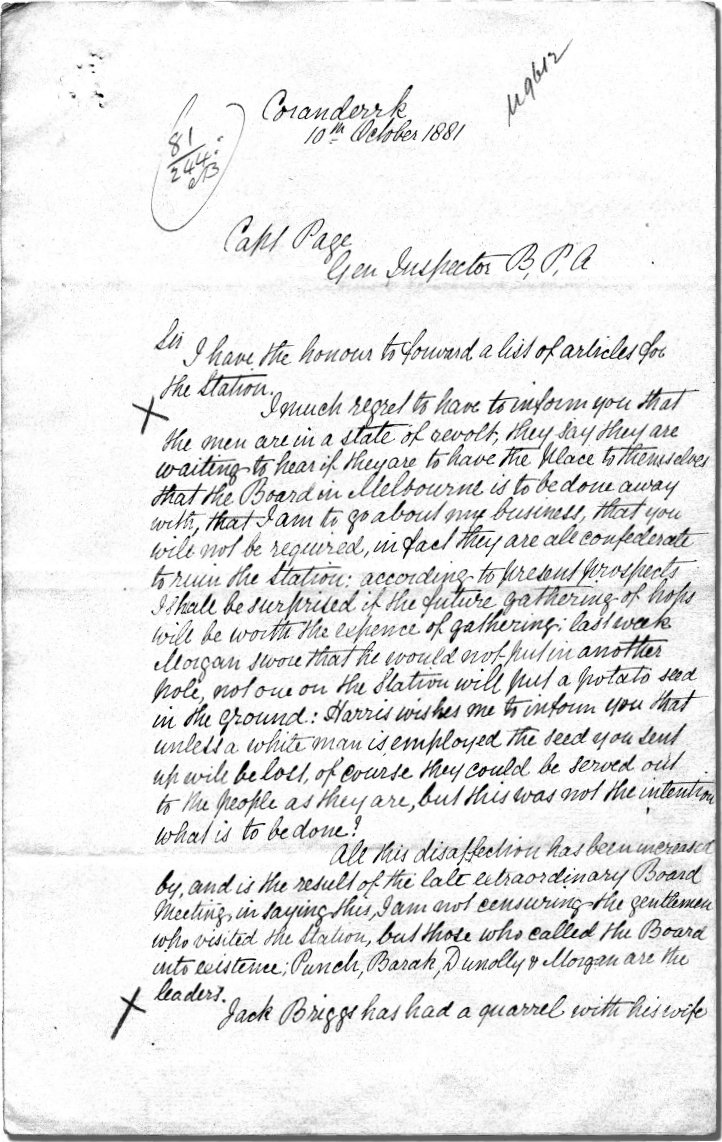 Coranderrk
10th October 1881
N9612
81
244.
B
Capt Page
Gen Inspector B, P, A
Sir
I have the honour to forward a list of articles for
the Station.
I much regret to have to inform you that
the men are in a state of revolt, they say they are
waiting to hear if they are to have the place to themselves
that the Board in Melbourne is to be done away
with, that I am to go about my business, that you
will not be required, in fact they are all confederate
to ruin the Station: according to present prospects
I shall be surprised if the future gathering of hops
will be worth the expence of gathering: last week
Morgan swore that he would not put in another
pole, not one on the Station will put a potato seed
in the ground: Harris wishes me to inform you that
unless a white man is employed the seed you sent
up will be lost, of course they could be served out
to the people as they are, but this was not the intention
what is to be done?
All this disaffection has been increased
by, and is the result of the late extraordinary Board
Meeting, in saying this, I am not censuring the gentlemen
who visited the Station, but those who called the Board
into existence; Punch, Barak, Dunolly & Morgan are the
leaders.
Jack Briggs has had a quarrel with his wife